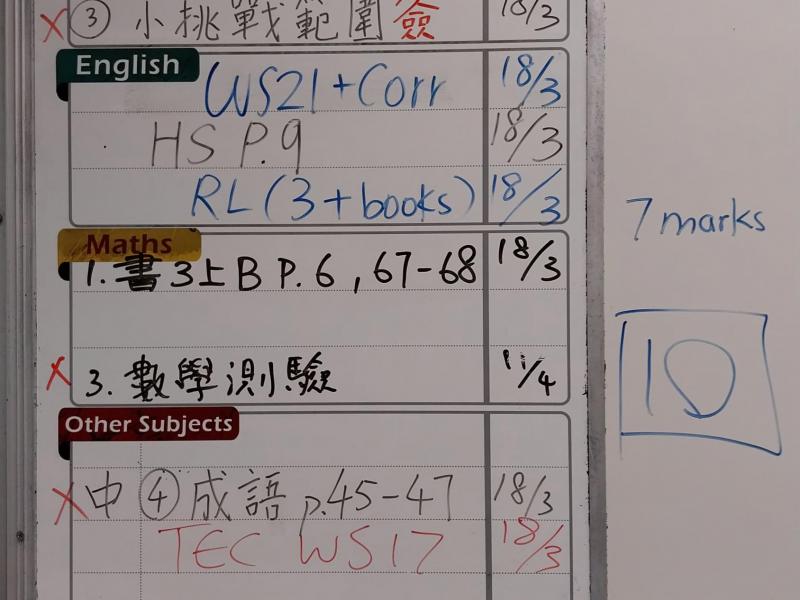 ③ 小挑戰範圍 18/3
English
WS21 + Corr 18/3
HS P.9 18/3
RL (3 + books) 18/3
7 marks
Maths
1. 書3上B P.6, 67-68 18/3
10
3. 數學測驗 11/4
Other Subjects
中 ④ 成語 p.45-47 18/3
TEC WS17 18/3